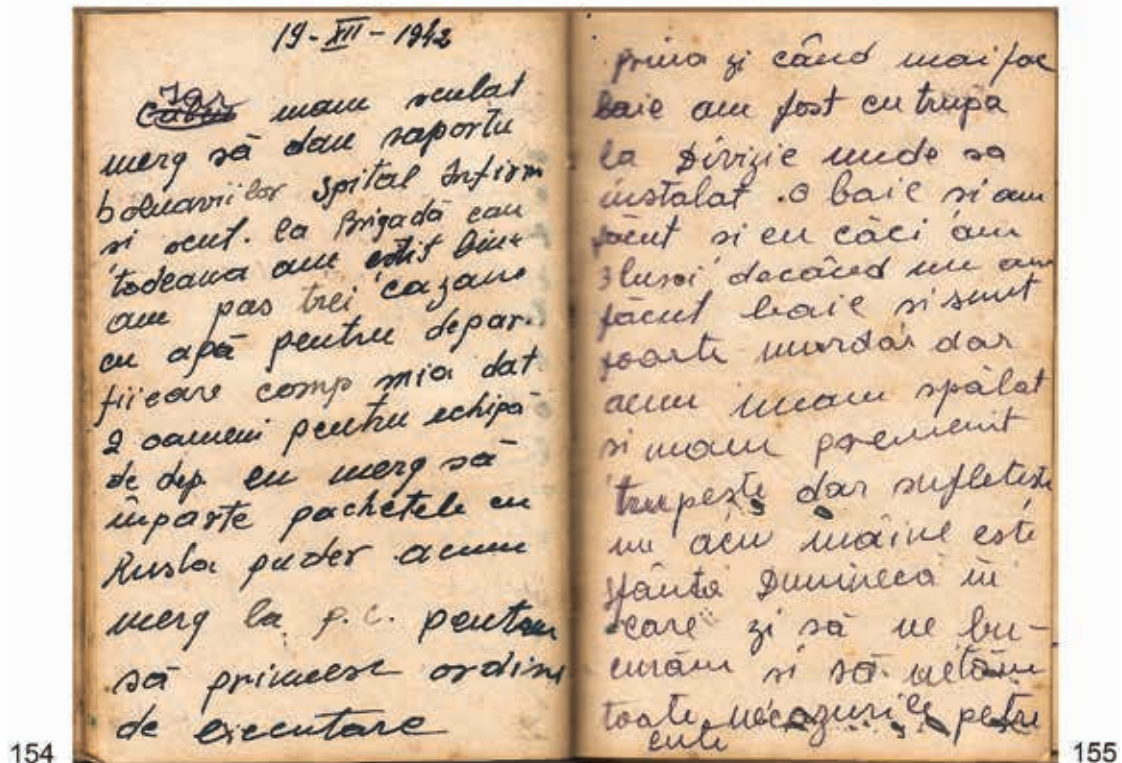 19-XII-1942
Iar
mam sculat
merg să dau raportu
bolnaviilor Spital Infirm
si scut. la Brigadă cau
todeauna am
am pas trei cazane
cu apă pentru depar.
fiicare comp mia dat
2 oameni pentru echipă
de dep. eu merg să
înparte pachetele cu
Rusla puder acum
merg la p.c. pentru
să primesc ordine
de executare
154
prima zi când mai fac
baie am fost cu trupa
la Divizie unde sa
instalat o baie si am
făcut si eu căci am
3 luni decând nu am
făcut baie si sunt
foarte murdar dar
acum mam spălat
si mam premenit
trupește dar sufletește
nu acu mâine este
sfânta Dumineca in
care zi să ne bu-
curăm si să uităm
toate necazurile petre
cute
155